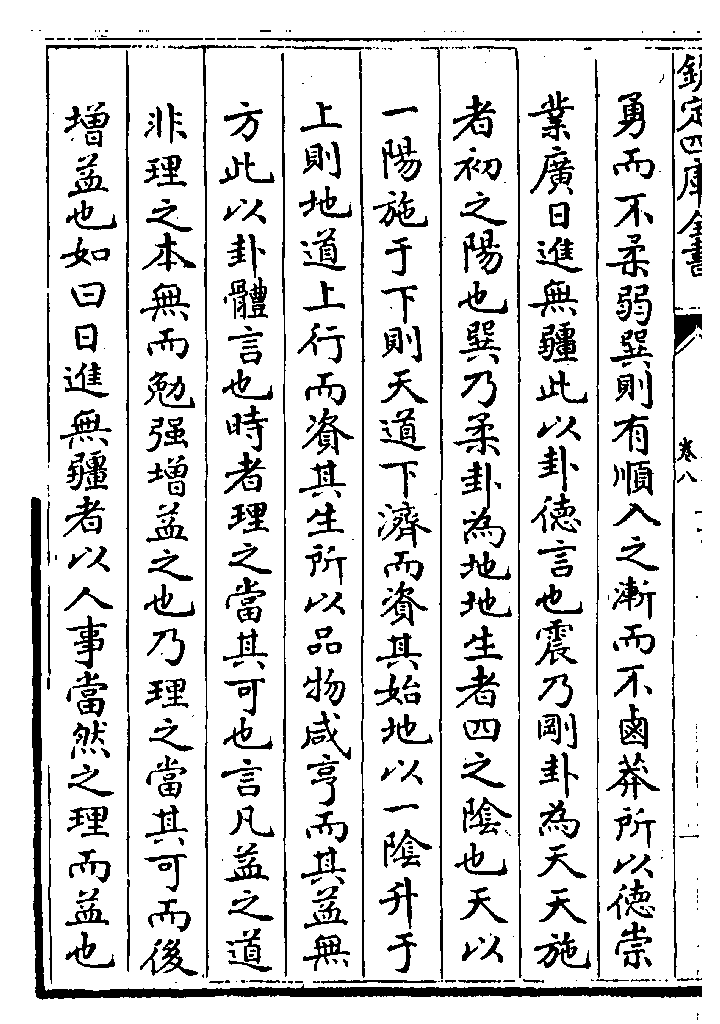 欽定四庫全書
卷八
勇而不柔弱巽則有順入之漸而不鹵莽所以德崇
業廣日進無疆此以卦德言也震乃剛卦為天天施
者初之陽也巽乃柔卦為地地生者四之陰也天以
一陽施于下則天道下濟而資其始地以一陰升于
上則地道上行而資其生所以品物咸亨而其益無
方此以卦體言也時者理之當其可也言凡益之道
非理之本無而勉强增益之也乃理之當其可而後
增益也如曰日進無疆者以人事當然之理而益也